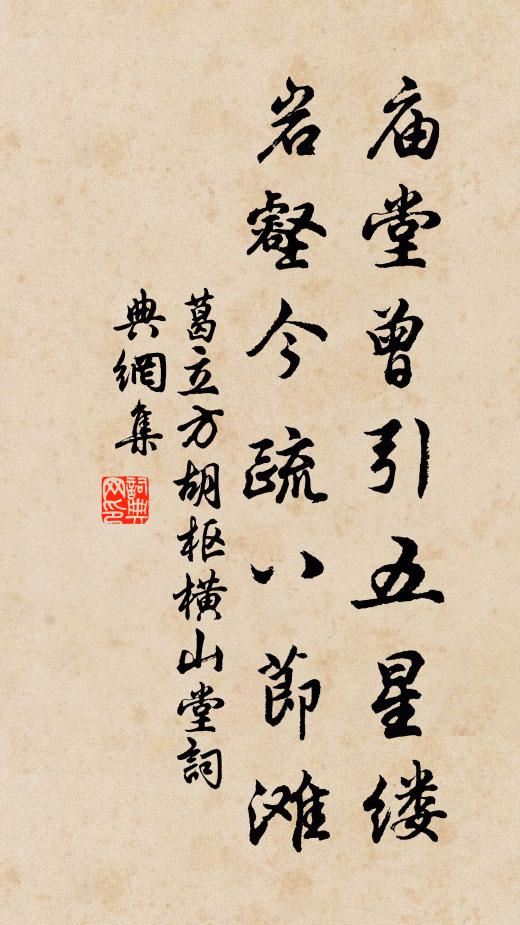 庙堂曾引五星缕
岩壑今疏八節滩
葛立方胡枢横山堂詞
典網集
詞典
网印